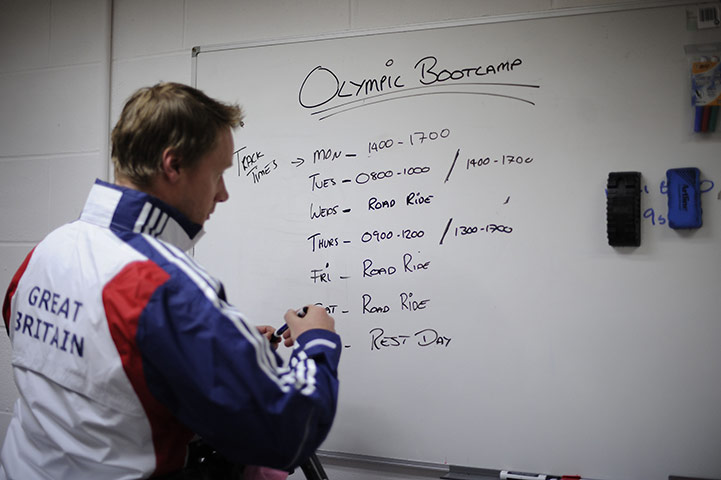 Olympic Bootcamp
Track Times → Mon – 1400-1700
Tues – 0800-1000 / 1400-1700
Weds – Road Ride
Thurs – 0900-1200 / 1300-1700
Fri – Road Ride
Sat – Road Ride
– Rest Day
GREAT
BRITAIN